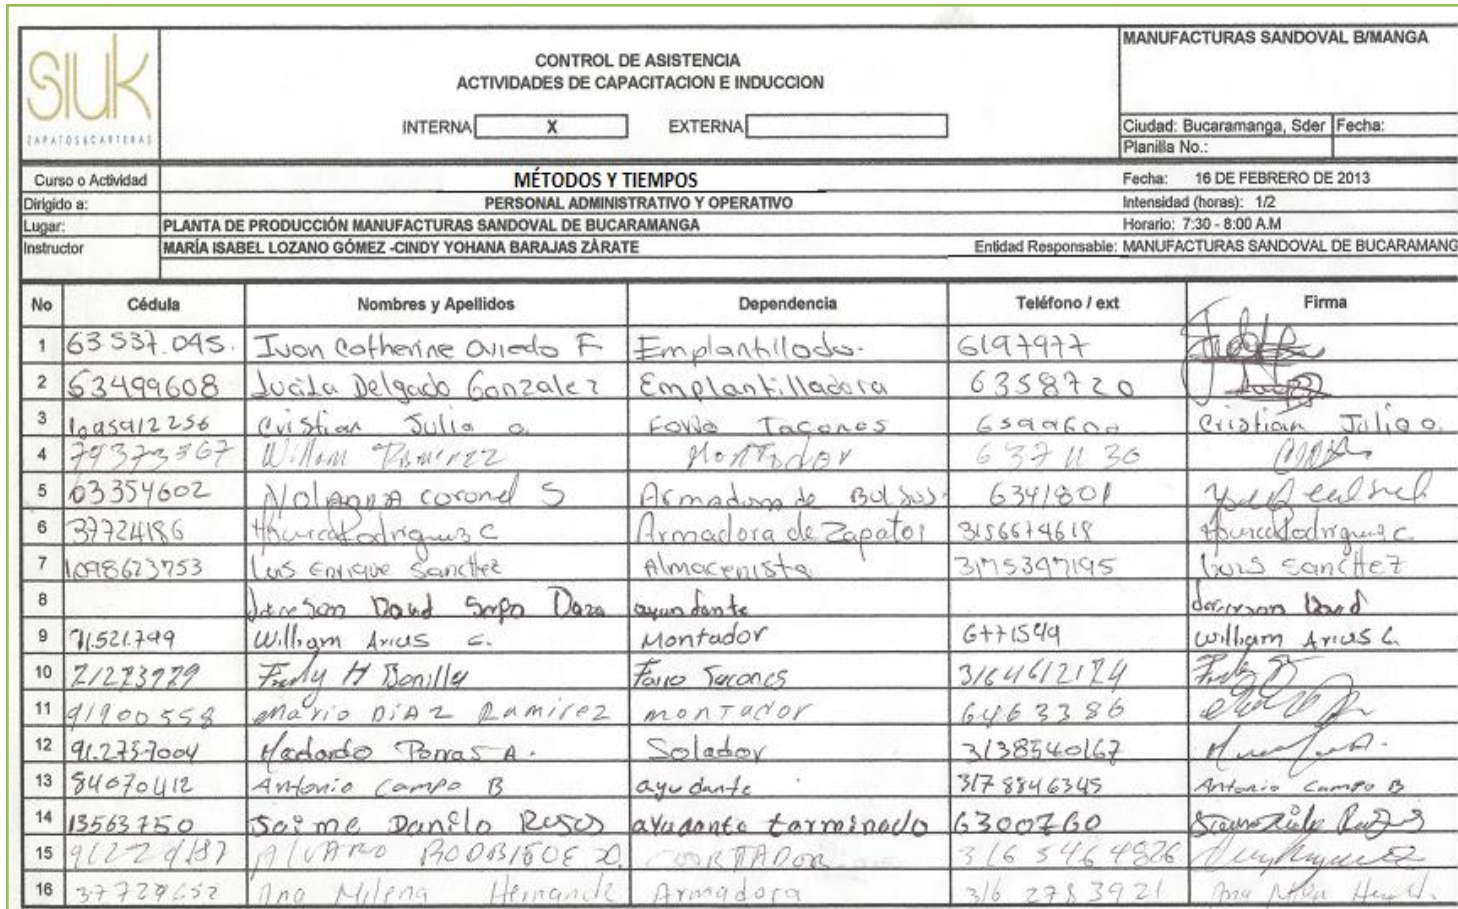 SIUK
ZAPATOS&CARTERAS
CONTROL DE ASISTENCIA
ACTIVIDADES DE CAPACITACION E INDUCCION
INTERNA X EXTERNA
MANUFACTURAS SANDOVAL B/MANGA
Ciudad: Bucaramanga, Sder Fecha:
Planilla No.:
Curso o Actividad MÉTODOS Y TIEMPOS Fecha: 16 DE FEBRERO DE 2013
Dirigido a: PERSONAL ADMINISTRATIVO Y OPERATIVO Intensidad (horas): 1/2
Lugar: PLANTA DE PRODUCCIÓN MANUFACTURAS SANDOVAL DE BUCARAMANGA Horario: 7:30 - 8:00 A.M
Instructor MARÍA ISABEL LOZANO GÓMEZ -CINDY YOHANA BARAJAS ZÀRATE Entidad Responsable: MANUFACTURAS SANDOVAL DE BUCARAMANG
No Cédula Nombres y Apellidos Dependencia Teléfono / ext Firma
1 63.537.045. Ivon Catherine Oviedo F. Emplantillado. 6197977
2 63499608 Lucila Delgado Gonzalez Emplantilladora 6358720
3 1095912256 Cristian Julio o. Forro Tacones Cristian Julio o.
4 79373367 William Ramirez Montador 637 11 30
5 coronel S Armadora de Bolsos. 6341801
6 37724186 Rodriguez C Armadora de Zapatos 3156674618 Rodriguez C.
7 1098623753 Luis Enrique Sanchez Almacenista 3175397195 Luis Sanchez
8 David Daza ayudante David
9 91.521.799 William Arias C. Montador 6771549 William Arias C.
10 Fredy H Bonilla Forro Tacones 3164612124
11 91900558 Mario DiAZ Ramirez monTador 6463386
12 Porras A. Solador 3138540167
13 84670412 Antonio Campo B ayudante 3178846345 Antonio Campo B
14 13563750 Jaime Danilo ayudante terminado 6300760
15 ALVARO CORTADOR 316 5464826
16 37729652 Ana Milena Hernandez Armadora 316 2783921 Ana Milen